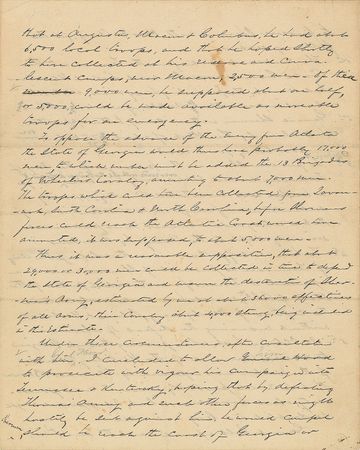 that at Augusta, Macon & Columbus, he had about
6,500 local troops, and that he hoped shortly
to have collected at his reserve and Conva-
lescent Camps, near Macon, 2,500 men. Of these
9,000 men, he supposed about one half,
or 5,000, could be made available as movable
troops for an emergency.
To oppose the advance of the enemy from Atlanta
the State of Georgia would thus have probably 17,000
men, to which number must be added the 13 Brigades
of Wheeler's Cavalry, amounting to about 7,000 men.
The troops which could have been collected from Savan-
nah, South Carolina & North Carolina, before Sherman's
forces could reach the Atlantic Coast, would have
amounted, it was supposed, to about 5,000 men.
Thus it was a reasonable supposition, that about
29,000 or 30,000 men could be collected in time to defend
the State of Georgia and insure the destruction of Sher-
man's Army, estimated by me at about 36,000 effectives
of all arms, their Cavalry about 4,000 strong, being included
in this estimate.
Under these circumstances, after consultation
with him, I concluded to allow General Hood
to prosecute with vigour his campaign into
Tennessee & Kentucky, hoping that by defeating
Thomas' Army and such other forces as might
hastily be sent against him, he would compel
Sherman, should he reach the Coast of Georgia or